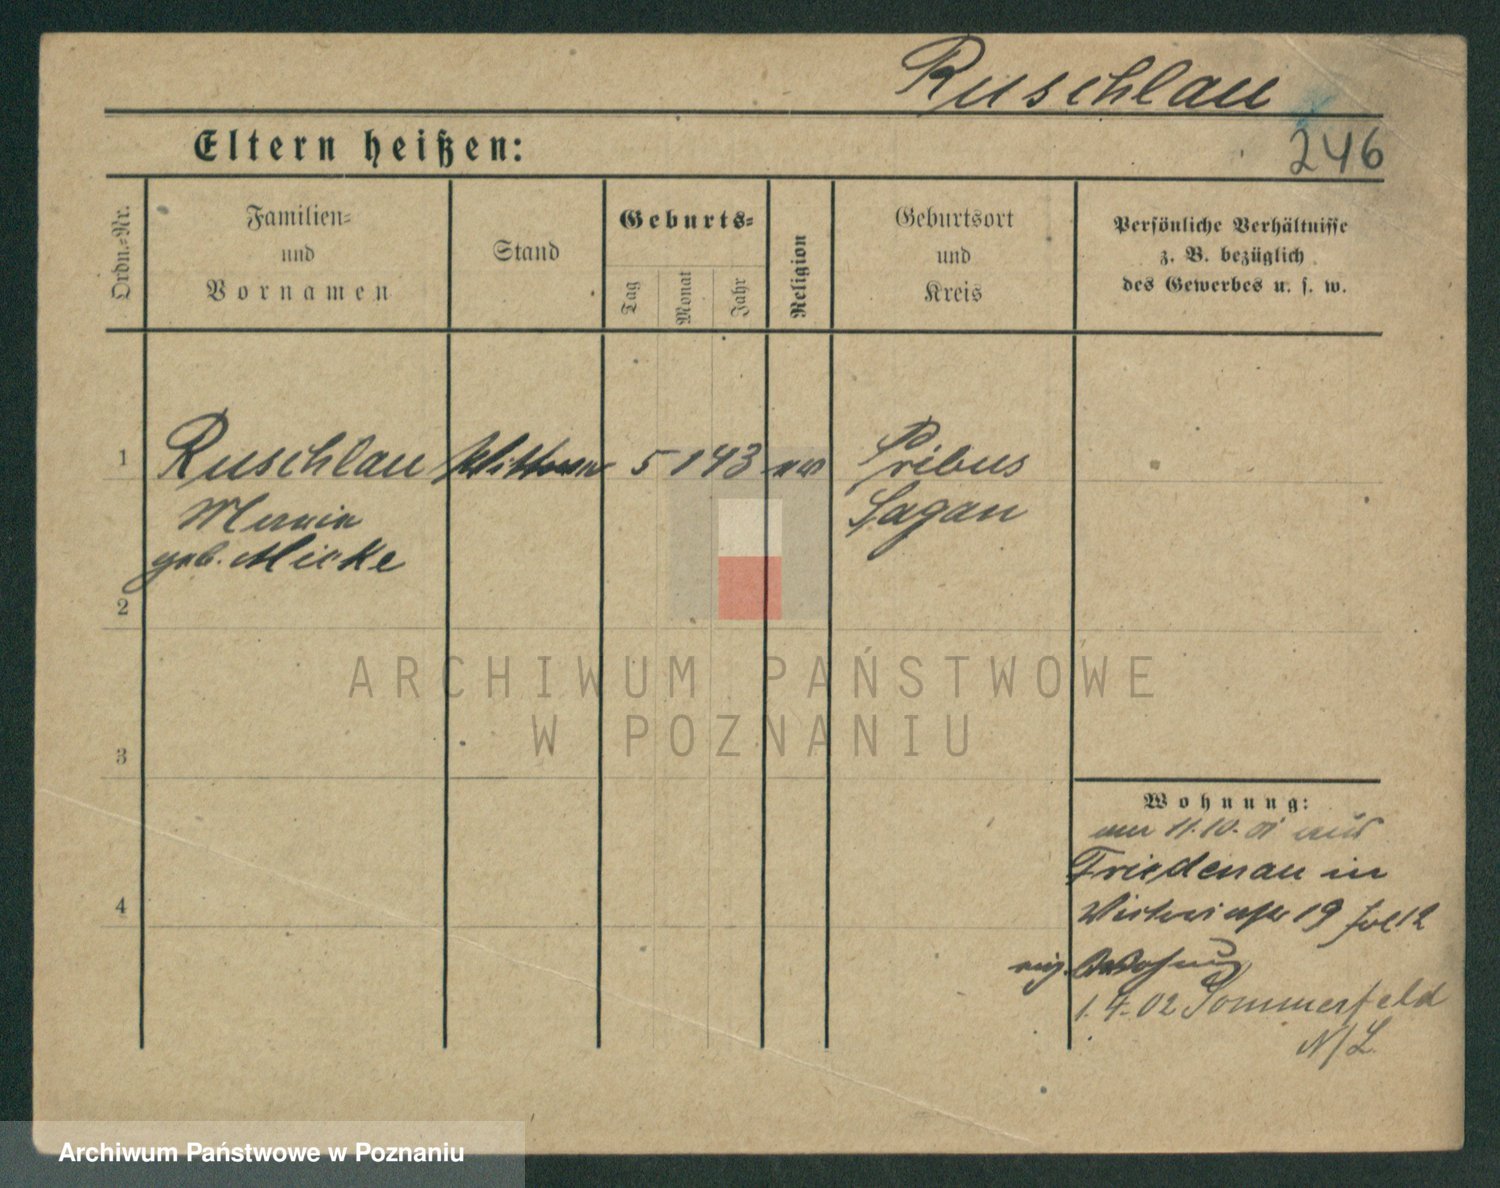 Ruschlau
246
Eltern heißen:
Ordn.-Nr.
Familien-
und
Vornamen
Stand
Geburts-
Tag
Monat
Jahr
Religion
Geburtsort
und
Kreis
Persönliche Verhältnisse
z. B. bezüglich
des Gewerbes u. s. w.
1 Ruschlau 5 1 43 ev Pribus
Sagan
geb. Micke
2
3
4
Wohnung:
am 11.10.01 aus
Friedenau in
19
eig. Wohnung
1.4.02 Sommerfeld
N/L.
ARCHIWUM PAŃSTWOWE
W POZNANIU
Archiwum Państwowe w Poznaniu